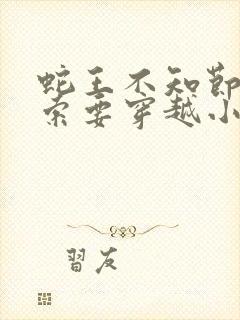 蛇王不知節
索要穿越小
習友